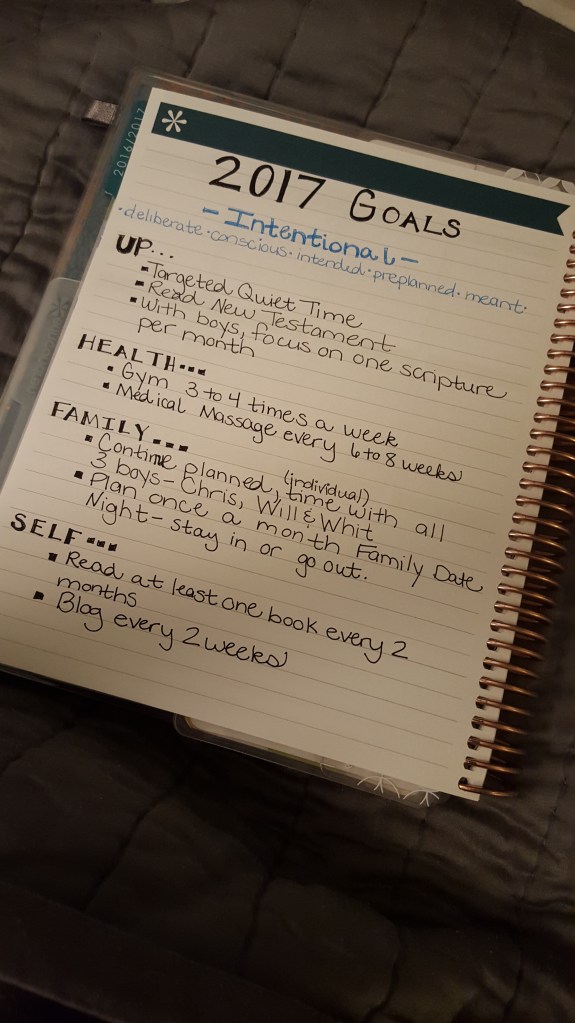 2016/2017
2017 GOALS
- Intentional -
·deliberate·conscious·intended·preplanned·meant·
UP...
▪Targeted Quiet Time
▪Read New Testament
▪With boys, focus on one scripture
per month
HEALTH...
▪Gym 3 to 4 times a week
▪Medical Massage every 6 to 8 weeks
FAMILY...
▪Contine planned, (individual) time with all
3 boys - Chris, Will & Whit
▪Plan once a month Family Date
Night - stay in or go out.
SELF...
▪Read at least one book every 2
months
▪Blog every 2 weeks